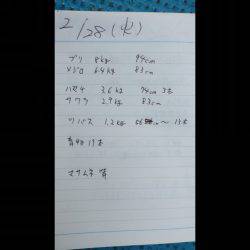 2/28(火)
ブリ 8kg 94cm
メジロ 6.4kg 83cm
ハマチ 3.6kg 74cm 3本
サワラ 2.9kg 83cm
ツバス 1.2kg 56cm〜 13本
青物 17本